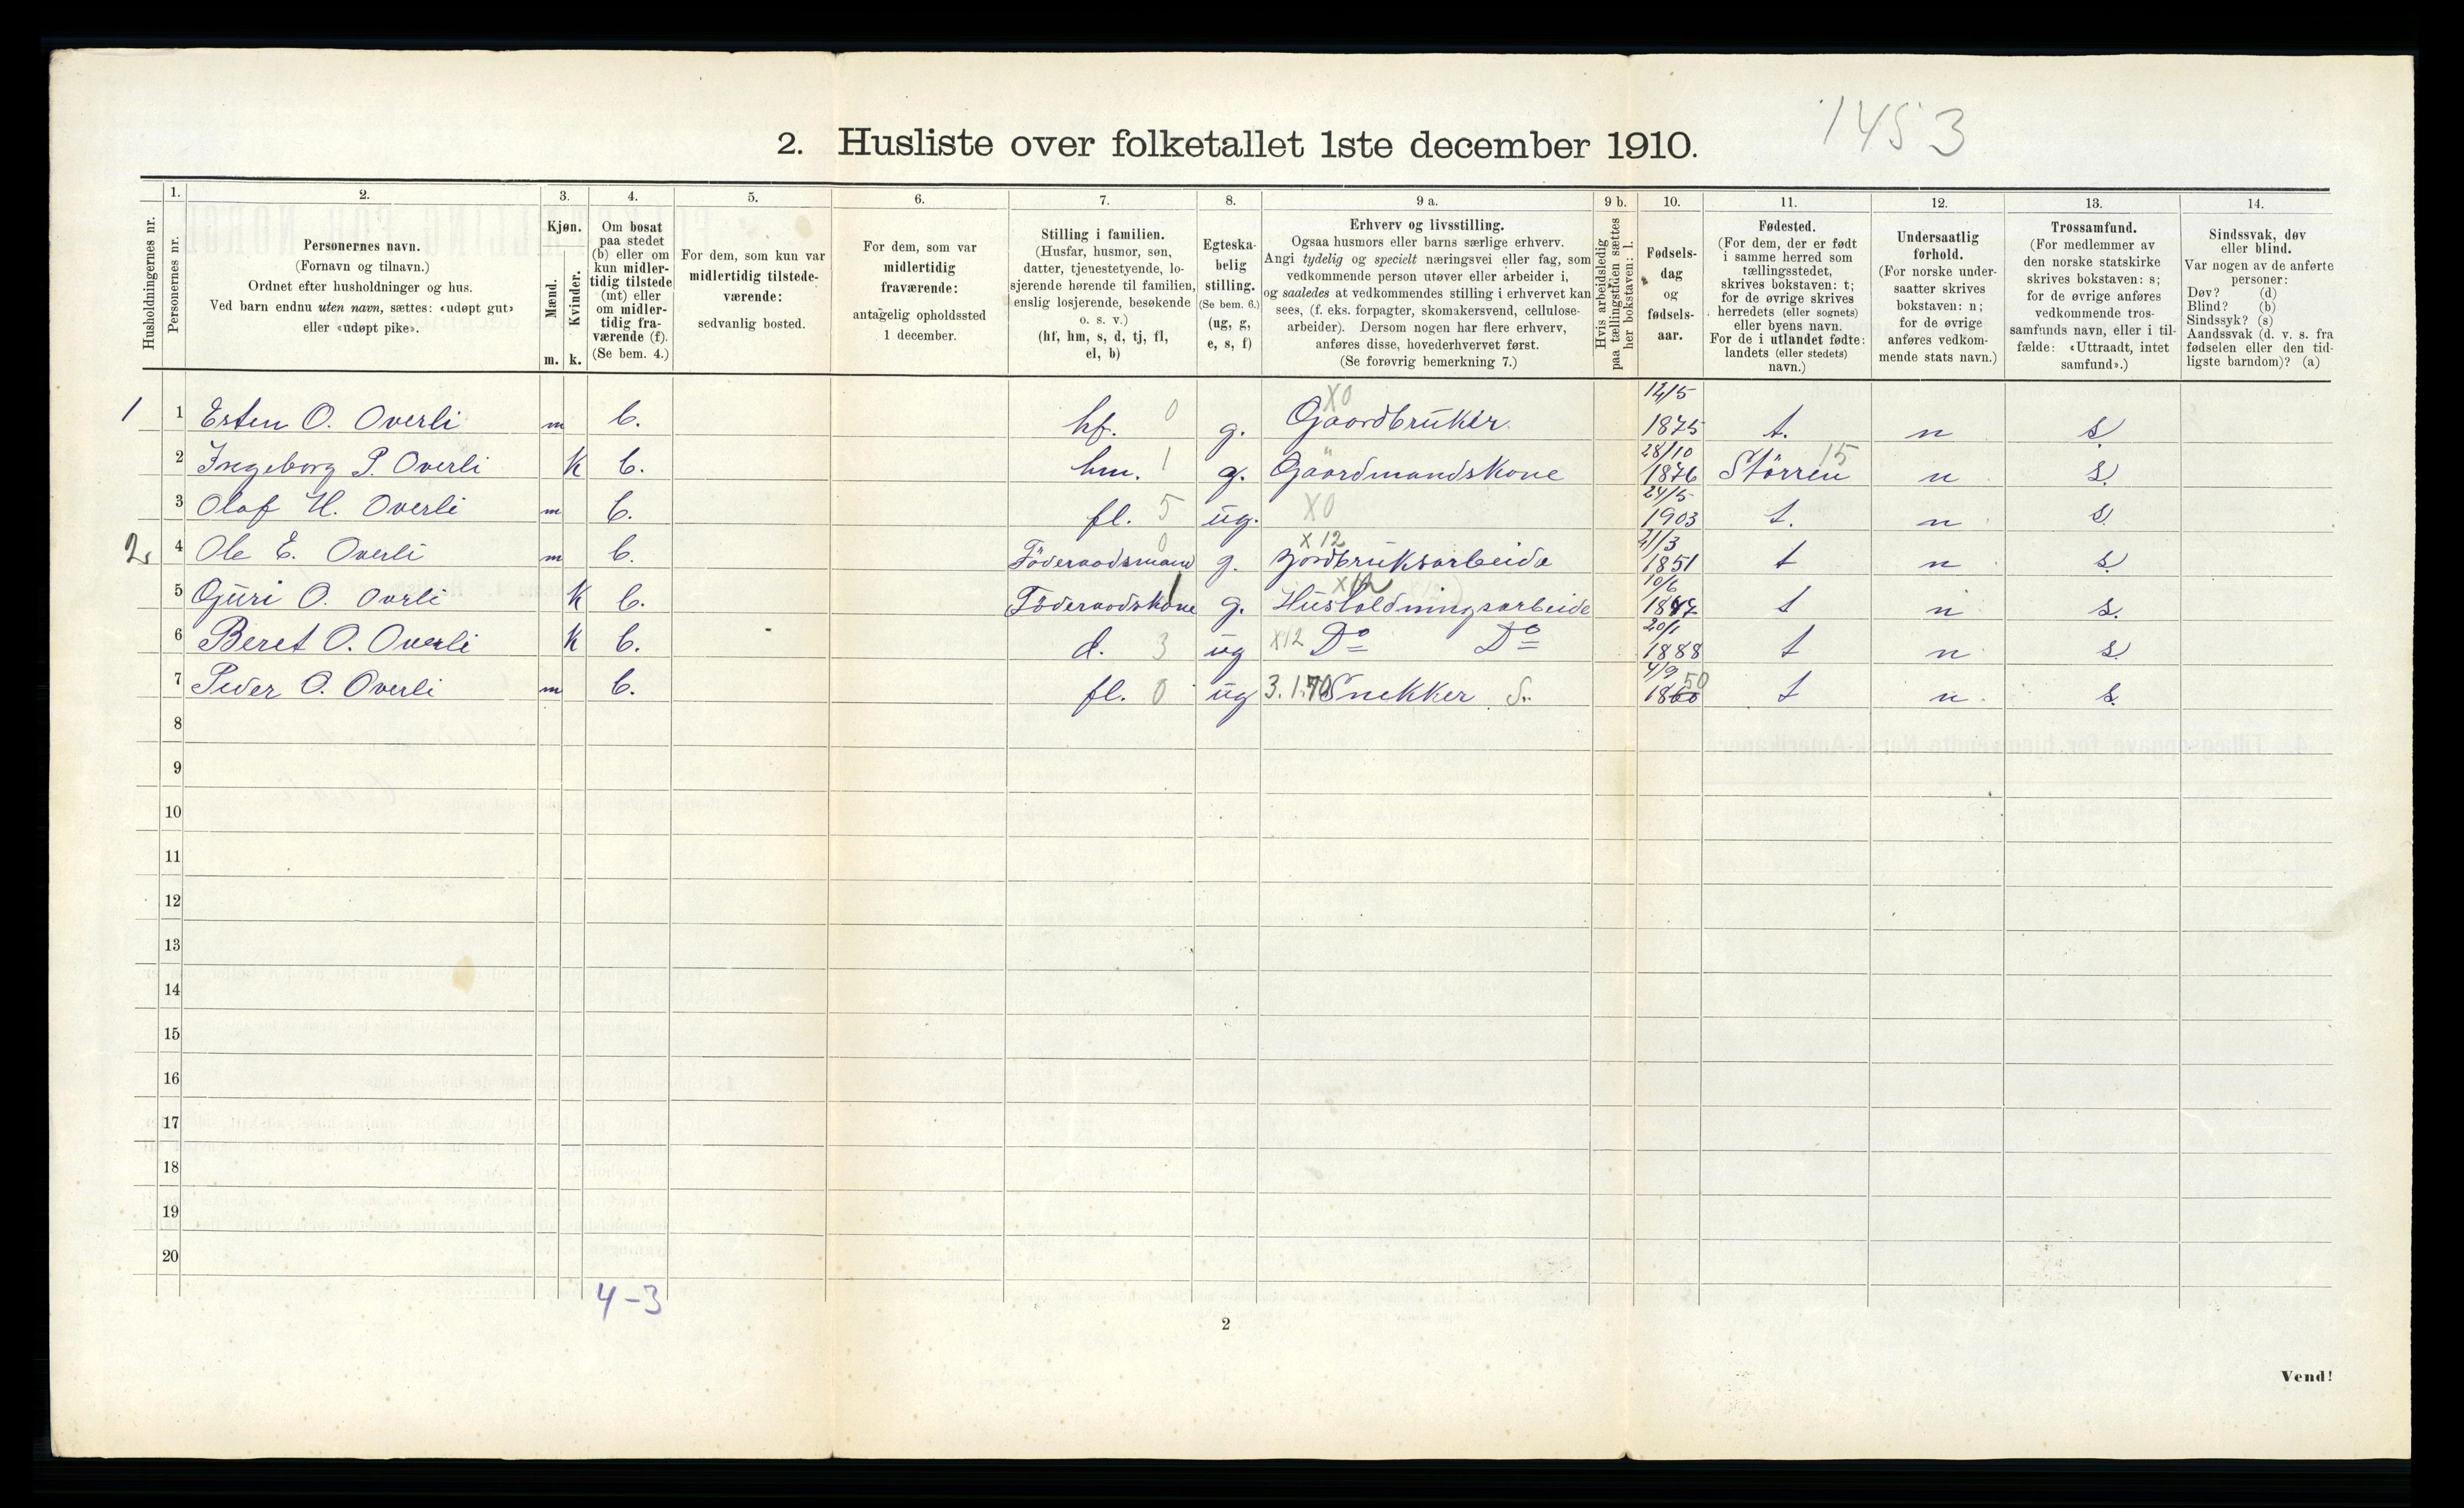 1453
2. Husliste over folketallet 1ste december 1910.
Husholdningernes nr.
1. Personernes nr.
2. Personernes navn.
(Fornavn og tilnavn.)
Ordnet efter husholdninger og hus.
Ved barn endnu uten navn, sættes: «udøpt gut»
eller «udøpt pike».
3. Kjøn.
Mænd. m.
Kvinder. k.
4. Om bosat
paa stedet
(b) eller om
kun midler-
tidig tilstede
(mt) eller
om midler-
tidig fra-
værende (f).
(Se bem. 4.)
5. For dem, som kun var
midlertidig tilstede-
værende:
sedvanlig bosted.
6. For dem, som var
midlertidig
fraværende:
antagelig opholdssted
1 december.
7. Stilling i familien.
(Husfar, husmor, søn,
datter, tjenestetyende, lo-
sjerende hørende til familien,
enslig losjerende, besøkende
o. s. v.)
(hf, hm, s, d, tj, fl,
el, b)
8. Egteska-
belig
stilling.
(Se bem. 6.)
(ug, g,
e, s, f)
9 a. Erhverv og livsstilling.
Ogsaa husmors eller barns særlige erhverv.
Angi tydelig og specielt næringsvei eller fag, som
vedkommende person utøver eller arbeider i,
og saaledes at vedkommendes stilling i erhvervet kan
sees, (f. eks. forpagter, skomakersvend, cellulose-
arbeider). Dersom nogen har flere erhverv,
anføres disse, hovederhvervet først.
(Se forøvrig bemerkning 7.)
9 b. Hvis arbeidsledig
paa tællingstiden sættes
her bokstaven: l.
10. Fødsels-
dag
og
fødsels-
aar.
11. Fødested.
(For dem, der er født
i samme herred som
tællingsstedet,
skrives bokstaven: t;
for de øvrige skrives
herredets (eller sognets)
eller byens navn.
For de i utlandet fødte:
landets (eller stedets)
navn.)
12. Undersaatlig
forhold.
(For norske under-
saatter skrives
bokstaven: n;
for de øvrige
anføres vedkom-
mende stats navn.)
13. Trossamfund.
(For medlemmer av
den norske statskirke
skrives bokstaven: s;
for de øvrige anføres
vedkommende tros-
samfunds navn, eller i til-
fælde: «Uttraadt, intet
samfund».)
14. Sindssvak, døv
eller blind.
Var nogen av de anførte
personer:
Døv? (d)
Blind? (b)
Sindssyk? (s)
Aandssvak (d. v. s. fra
fødselen eller den tid-
ligste barndom)? (a)
1 1 Esten O. Overli m b. hf. 0 g. X0 Gaardbruker. 12/5 1875 t. n s
2 Ingeborg P. Overli K b. hm. 1 g. Gaardmandskone 28/10 1876 Störren 15 n s.
3 Olaf H. Overli m b. fl. 5 ug. X0 24/5 1903 t. n s.
2. 4 Ole E. Overli m b. Föderaadsmand 0 g. X 12 jordbruksarbeide 21/3 1851 t n s
5 Guri O. Overli K b. Föderaadskone 1 g. Husholdningsarbeide 10/6 1847 t n s.
6 Beret O. Overli K b. d. 3 ug X12 Do Do 20/1 1888 t n s
7 Peder O. Overli m b. fl. 0 ug 3.1.70 Snekker S. 4/9 1860 50 t n s.
8
9
10
11
12
13
14
15
16
17
18
19
20
4-3
2
Vend!